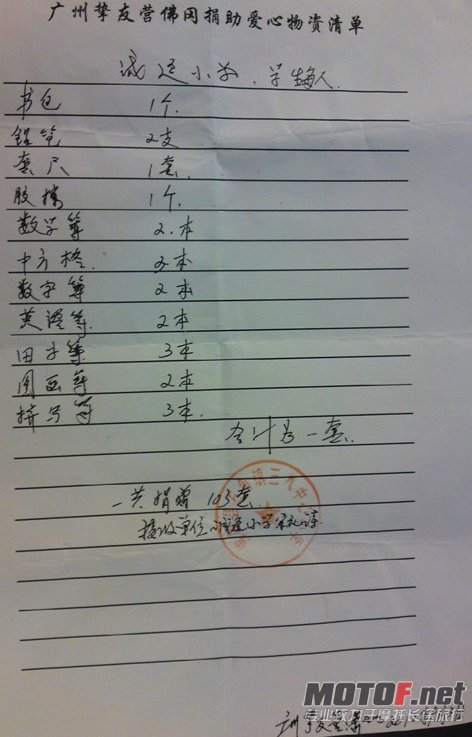 广州挚友营佛冈捐助爱心物资清单
诚迳小学、学生每人
书包 1个.
铅笔 2支
套尺 1套.
胶擦 1个.
数学簿 2.本
中方格. 2本
数字簿 2本
英语簿. 2本
田字簿 3本
图画簿 2本
拼写簿 3本.
合计为一套.
一共捐赠 103套.
接收单位:诚迳小学
镇三八中
MOTOF.net
专业致力于摩托长途旅行